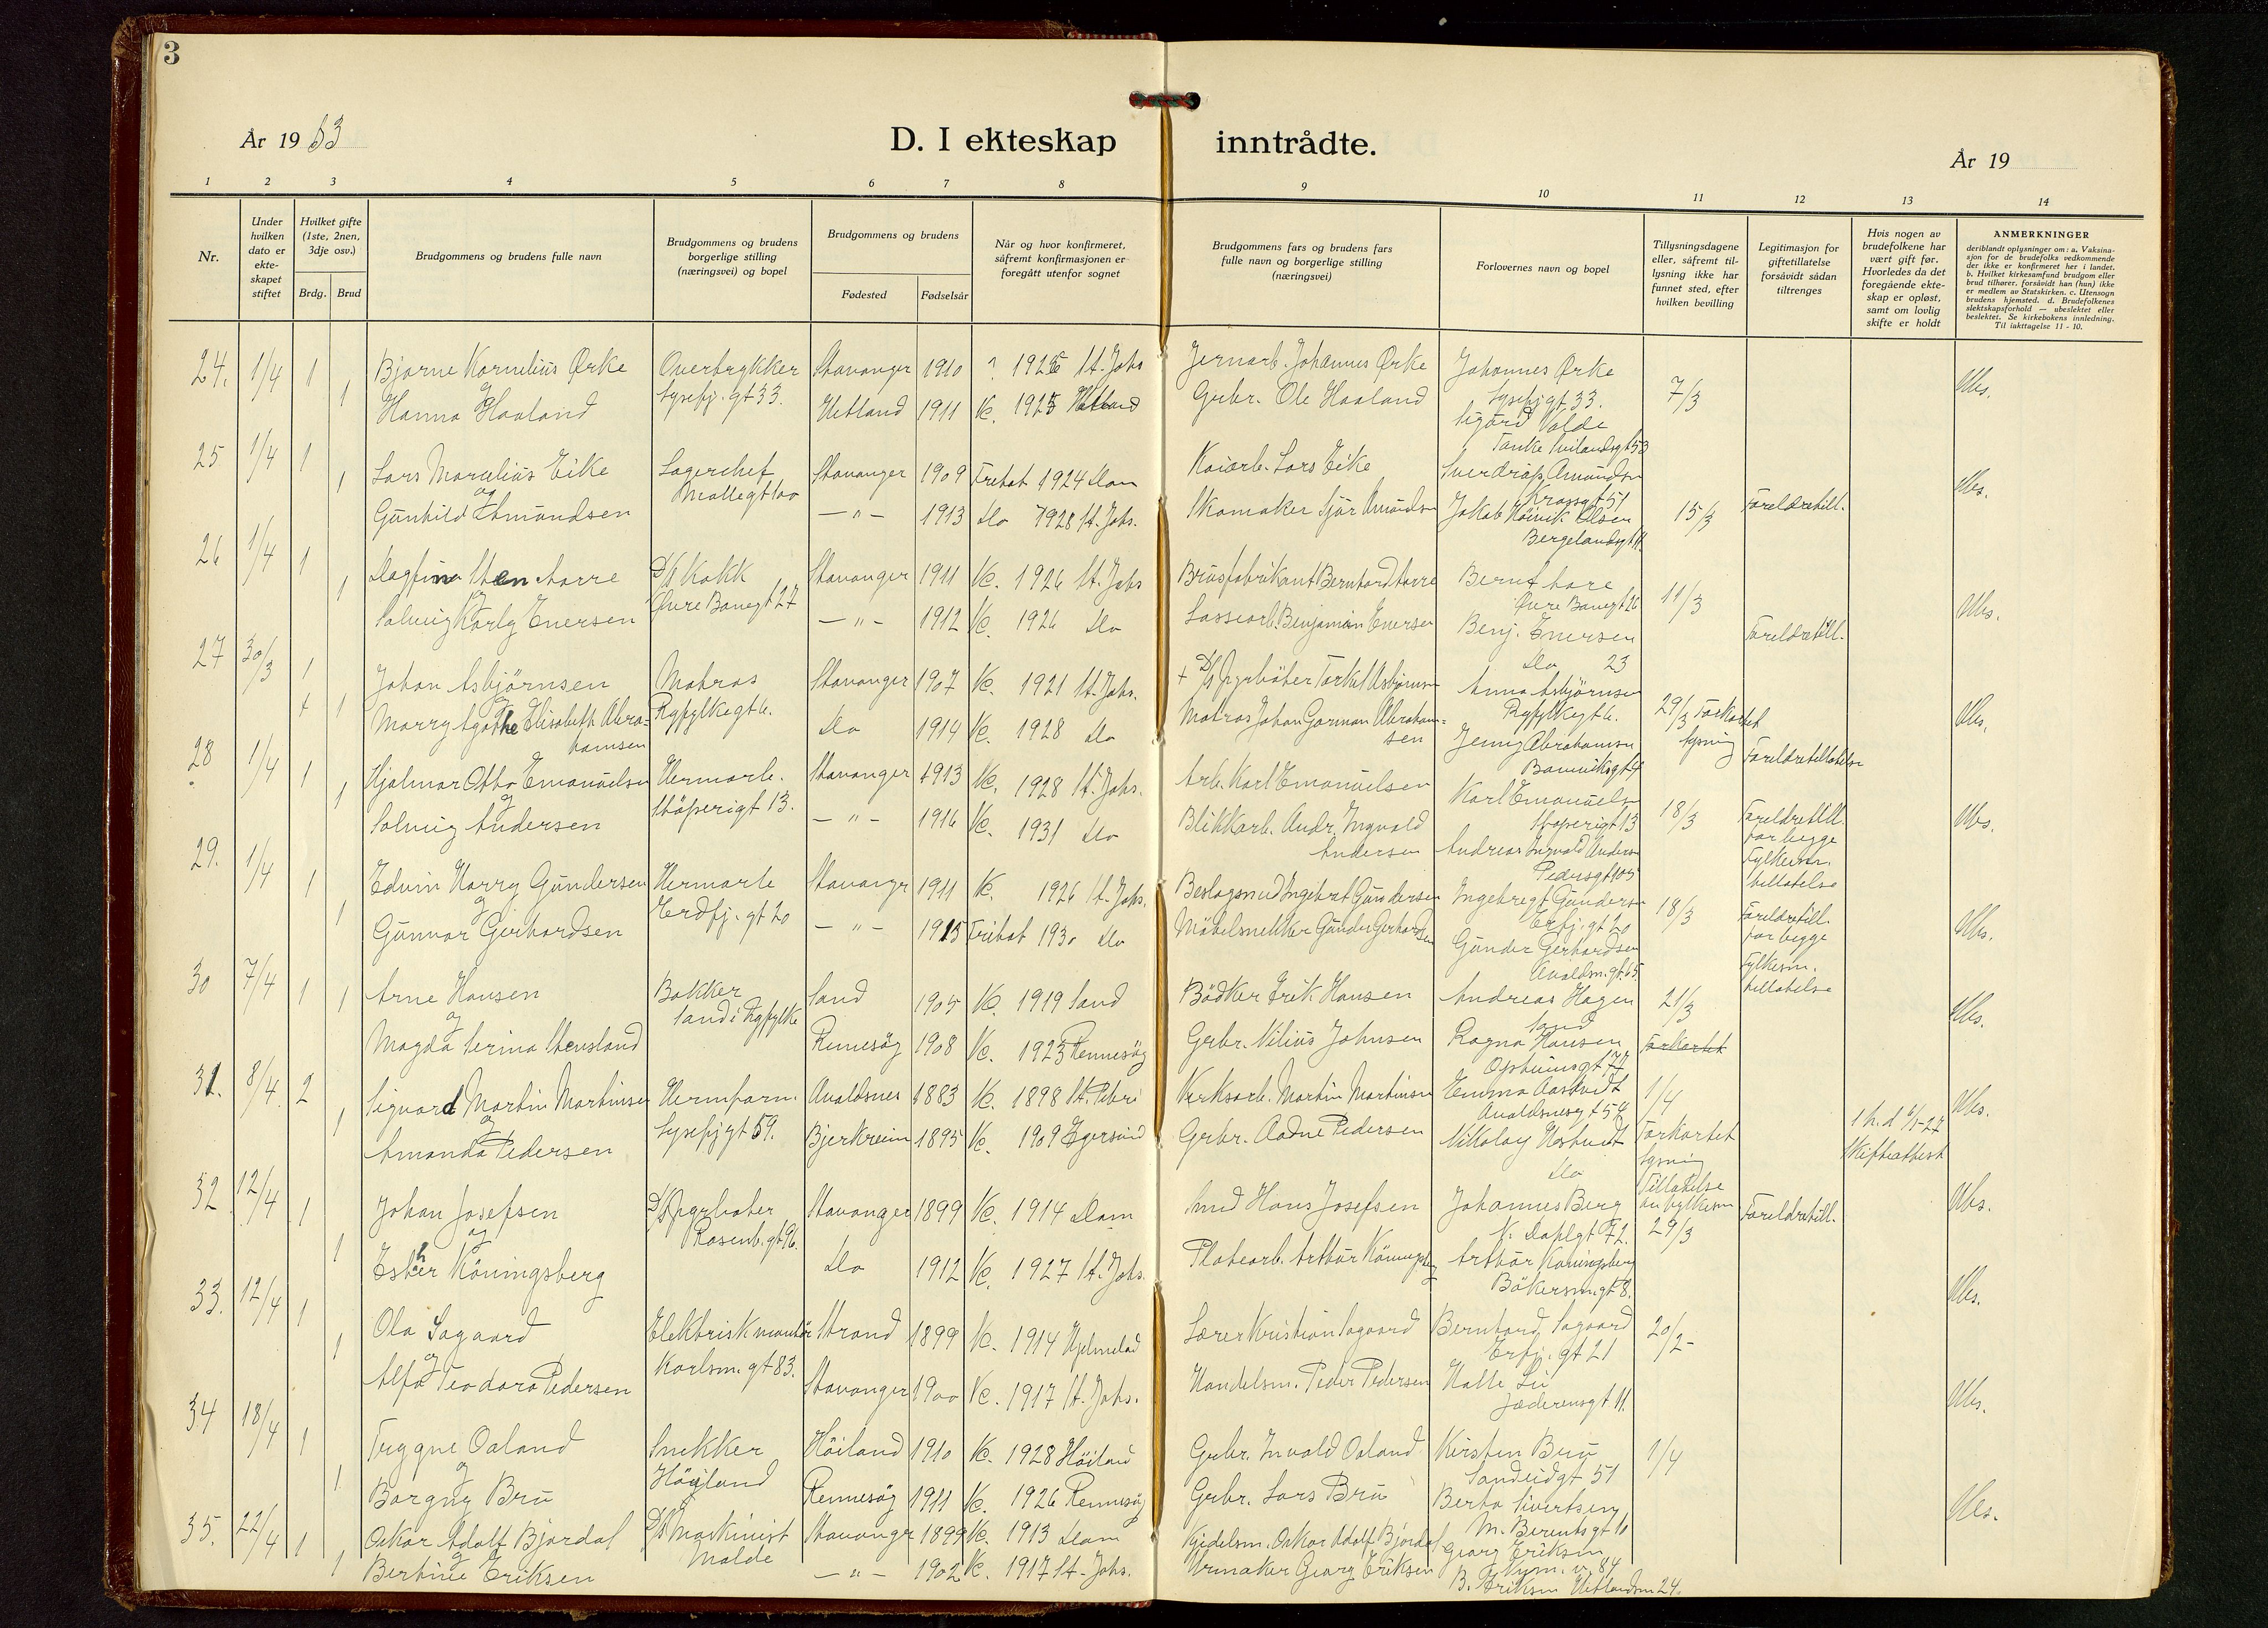 3
År 1933
D. I ekteskap inntrådte.
År 19
1 2 3 4 5 6 7 8 9 10 11 12 13 14
Nr.
Under hvilken dato er ekte- skapet stiftet
Hvilket gifte (1ste, 2nen, 3dje osv.)
Brdg. Brud
Brudgommens og brudens fulle navn
Brudgommens og brudens borgerlige stilling (næringsvei) og bopel
Brudgommens og brudens
Fødested
Fødselsår
Når og hvor konfirmeret, såfremt konfirmasjonen er foregått utenfor sognet
Brudgommens fars og brudens fars fulle navn og borgerlige stilling (næringsvei)
Forlovernes navn og bopel
Tillysningsdagene eller, såfremt til- lysning ikke har funnet sted, efter hvilken bevilling
Legitimasjon for giftetillatelse forsåvidt sådan tiltrenges
Hvis nogen av brudefolkene har vært gift før. Hvorledes da det foregående ekte- skap er opløst, samt om lovlig skifte er holdt
ANMERKNINGER
deriblandt oplysninger om: a. Vaksina- sjon for de brudefolks vedkommende der ikke er konfirmeret her i landet. b. Hvilket kirkesamfund brudgom eller brud tilhører, forsåvidt han (hun) ikke er medlem av Statskirken. c. Utensogn brudens hjemsted. d. Brudefolkenes slektskapsforhold — ubeslektet eller beslektet. Se kirkebokens innledning. Til iakttagelse 11 - 10.
24. 1/4 1 Bjarne Kornelius Ørke Overtrykker Stavanger 1910 1925 St. Johs Jernarb. Johannes Ørke Johannes Ørke Ubs.
og Lysefj. gt 33. Lysefjgt 33. 7/3
1 Hanna Haaland Hetland 1911 K. 1925 Hetland Grbr. Ole Haaland Sigurd Valde
25 1/4 1 Lars Marcelius Eike Lagerchef Stavanger 1909 Fribet 1924 Dom Kaiarb. Lars Eike Sverdrup Amundsen Ubs.
og Møllegt 100
1 Gunhild Amundsen — " — 1913 Do 1928 St. Johs. Skomaker Amundsen Jakob Høivik Olsen 15/3 Foreldretill.
Bergelandsgt 11.
26 1/4 1 Dagfinn Sten D/S Kokk Stavanger 1911 K. 1926 St. Johs Brusfabrikant Bernhard Bernt
og Øvre Banegt 27 Øvre Banegt 26 11/3 Ubs.
1 Solveig Karly Enersen — " — 1912 K. 1926 Do Benjamin Enersen Benj. Enersen Foreldretill.
Do 23
27 30/3 1 Johan Asbjørnsen Matros Stavanger 1907 K. 1921 St. Johs. + D/S Fyrbøter Torkel Asbjørnsen Anna Asbjørnsen
og Ryfylkegt 6. Ryfylkegt 6. 29/3 Forkortet Ubs.
1 Marry Agathe Elisabeth Abra- Do 1914 K. 1928 Do Matros Johan Gorman Abraham= Jenny Abrahamsen lysning Foreldretillatelse
hamsen sen
28 1/4 1 Hjalmar Otto Emanuelsen Hermarb. Stavanger 1913 K. 1928 St. Johs. Arb. Karl Emanuelsen Karl Emanuelsen
og Støperigt 13. Støperigt 13 18/3 Foreldretill. Ubs.
1 Solveig Andersen — " — 1916 K. 1931 Do Blikkarb. Andr. Ingvald Andreas Ingvald Andersen for begge
Andersen Pedersgt 105 Fylkesm. tillatelse
29. 1/4 1 Edvin Harry Gundersen Hermarb Stavanger 1911 K. 1926 St. Johs. Beslagsmed Ingebret Gundersen Ingebregt Gundersen
og Erdfj. gt 20 Erfj. gt 20 18/3 Foreldretill. Ubs.
1 Gunvor Gerhardsen — " — 1915 Fribet 1930 Do Møbelsnekker Gunder Gerhardsen Gunder Gerhardsen for begge
Avaldsn. gt. 65. Fylkesm. tillatelse
30 7/4 1 1 Arne Hansen Bakker Sand 1905 K. 1919 Sand Bødker Erik Hansen Andreas Hagen 21/3
og Sand i Ryfylke Sand Ubs.
Magda Serina Stensland Rennesøy 1908 K. 1923 Rennesøy Grbr. Nilius Johnsen Ragna Hansen Forkortet
31. 8/4 2 Sigvard Martin Martinsen Hermform. Avaldsnes 1883 K. 1898 St. Petri Verksarb. Martin Martinsen Emma Aastvedt 1/4
og Lysefjgt 59. Avaldsnesgt 54 Ubs.
1 Amanda Pedersen Bjerkreim 1895 K. 1909 Egersund Grbr. Aadne Pedersen Nikolay Forkortet Skifteattest
Do lysning
32 12/4 1 Johan Josefsen D/S Fyrbøter Stavanger 1899 K. 1914 Dom Smed Hans Josefsen Johannes Berg Tillatelse av fylkesm Foreldretill. Ubs.
og Rosenb. gt 96. 72. 29/3
1 Esther Køningsberg Do 1912 K. 1927 St. Johs. Platearb. Arthur Køningsberg Arthur Køningsberg
Bøkersm. gt 8.
33. 12/4 1 Ola Sagaard Elektrisk montør Strand 1899 K. 1914 Hjelmeland Lærer Kristian Sagaard Bernhard Sagaard 20/2- Ubs.
og Karlsm. gt 83. Erfj. gt 21
1 Alfa Teodora Pedersen Stavanger 1900 K. 1917 St. Johs. Handelsm. Peder Pedersen Halle
Jæderensgt 11.
34 18/4 1 Trygve Oaland Snekker Høiland 1910 K. 1928 Høiland Grbr. Invald Oaland Kirsten Bru 1/4 Ubs.
og Høyland Sandeidgt 51
1 Borgny Bru Rennesøy 1911 K. 1926 Rennesøy Grbr. Lars Bru Berta Sivertsen
M. Berentsgt 10
35. 22/4 1 Oskar Adolf Bjørdal D/S Maskinist Stavanger 1899 K. 1913 Dom Oskar Adolf Bjørdal Georg Eriksen Ubs.
og Molde Nym. v. 84
1 Bertine Eriksen — " — 1902 K. 1917 St. Johs. Urmaker Georg Eriksen B. Eriksen Hetlandsm 24.